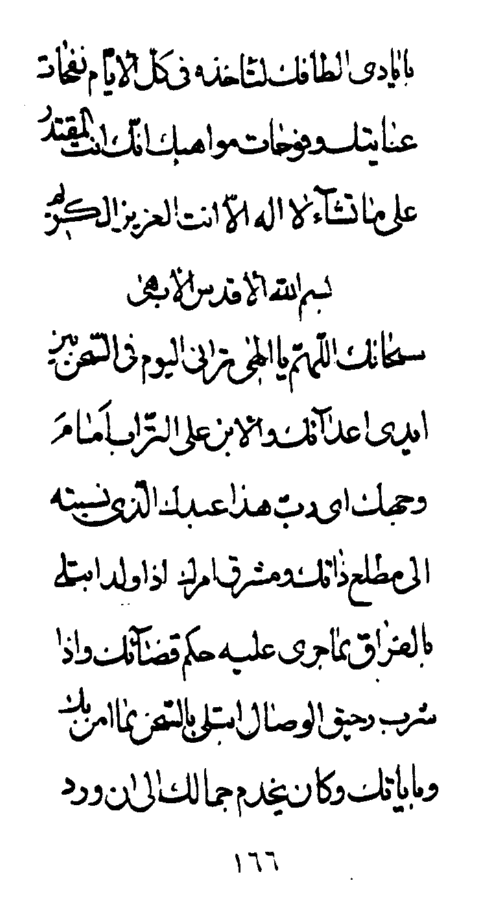 بايادى الطافك لتأخذه فى كلّ الايّام نفحات
عنايتك و فوحات مواهبك انّك انت المقتدر
على ما تشآء لا اله الاّ انت العزيز الكريم
بسم الله الاقدس الابهى
سبحانك اللّهمّ يا الهى ترانى اليوم فى السّجن بين
ايدى اعدآئك و الابن على التّراب اَمامَ
وجهك اى ربّ هذا عبدك الّذى نسبته
الى مطلع ذاتك و مشرق امرك اذا ولد ابتلى
بالفراق بما جرى عليه حكم قضآئك و اذا
شرب رحيق الوصال ابتلى بالسّجن بما امن بك
و باياتك و كان يخدم جمالك الى ان ورد
١٦٦